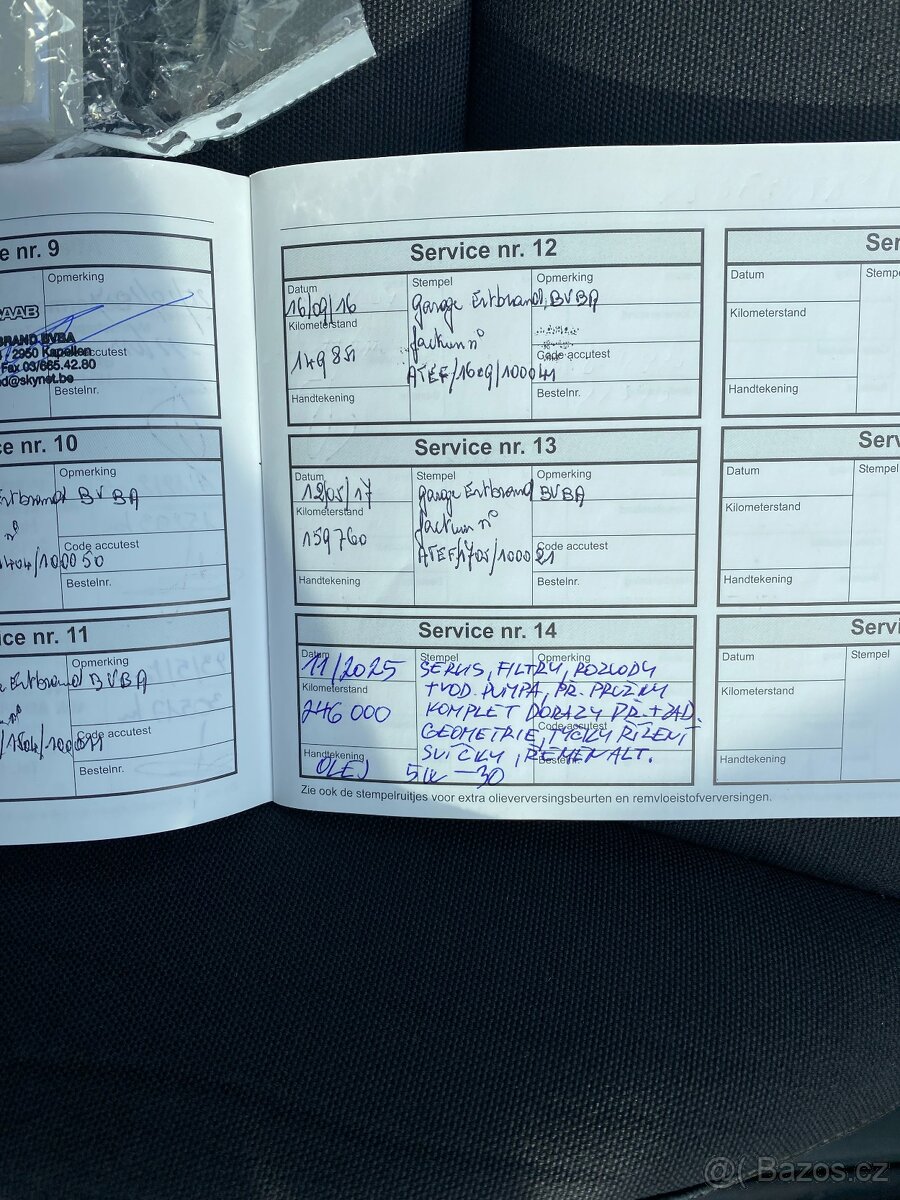 e nr. 9
Opmerking
AAB
BRAND BVBA
2950 Kapellen
accutest
Fax 03/665.42.80
d@skynet.be
Bestelnr.
ce nr. 10
Opmerking
Ertbrand BVBA
n°
Code accutest
1404/100050
Bestelnr.
ice nr. 11
Opmerking
Ertbrand BVBA
n°
Code accutest
Bestelnr.
Service nr. 12
Datum
16/09/16
Stempel
Garage Ertbrand BVBA
Opmerking
Kilometerstand
factuur n°
Code accutest
ATEF/1609/100041
Handtekening
Bestelnr.
Service nr. 13
Datum
12/05/17
Stempel
Garage Ertbrand BVBA
Opmerking
Kilometerstand
159760
factuur n°
Code accutest
ATEF/1705/100021
Handtekening
Bestelnr.
Service nr. 14
Datum
11/2025
Stempel
Opmerking
SERVIS, FILTRY, ROZVODY
Kilometerstand
+VOD. PUMPA, PŘ. PRUŽINY
246 000
KOMPLET DORAZY PŘ.+ZAD.
Code accutest
GEOMETRIE, TYČKY ŘÍZENÍ
SVÍČKY, ŘEMEN ALT.
Handtekening
Bestelnr.
OLEJ 5W-30
Zie ook de stempelruitjes voor extra olieverversingsbeurten en remvloeistofverversingen.
Ser
Datum
Stemp
Kilometerstand
Handtekening
Serv
Datum
Stempel
Kilometerstand
Handtekening
Servi
Datum
Stempel
Kilometerstand
Handtekening
@( Bazos.cz